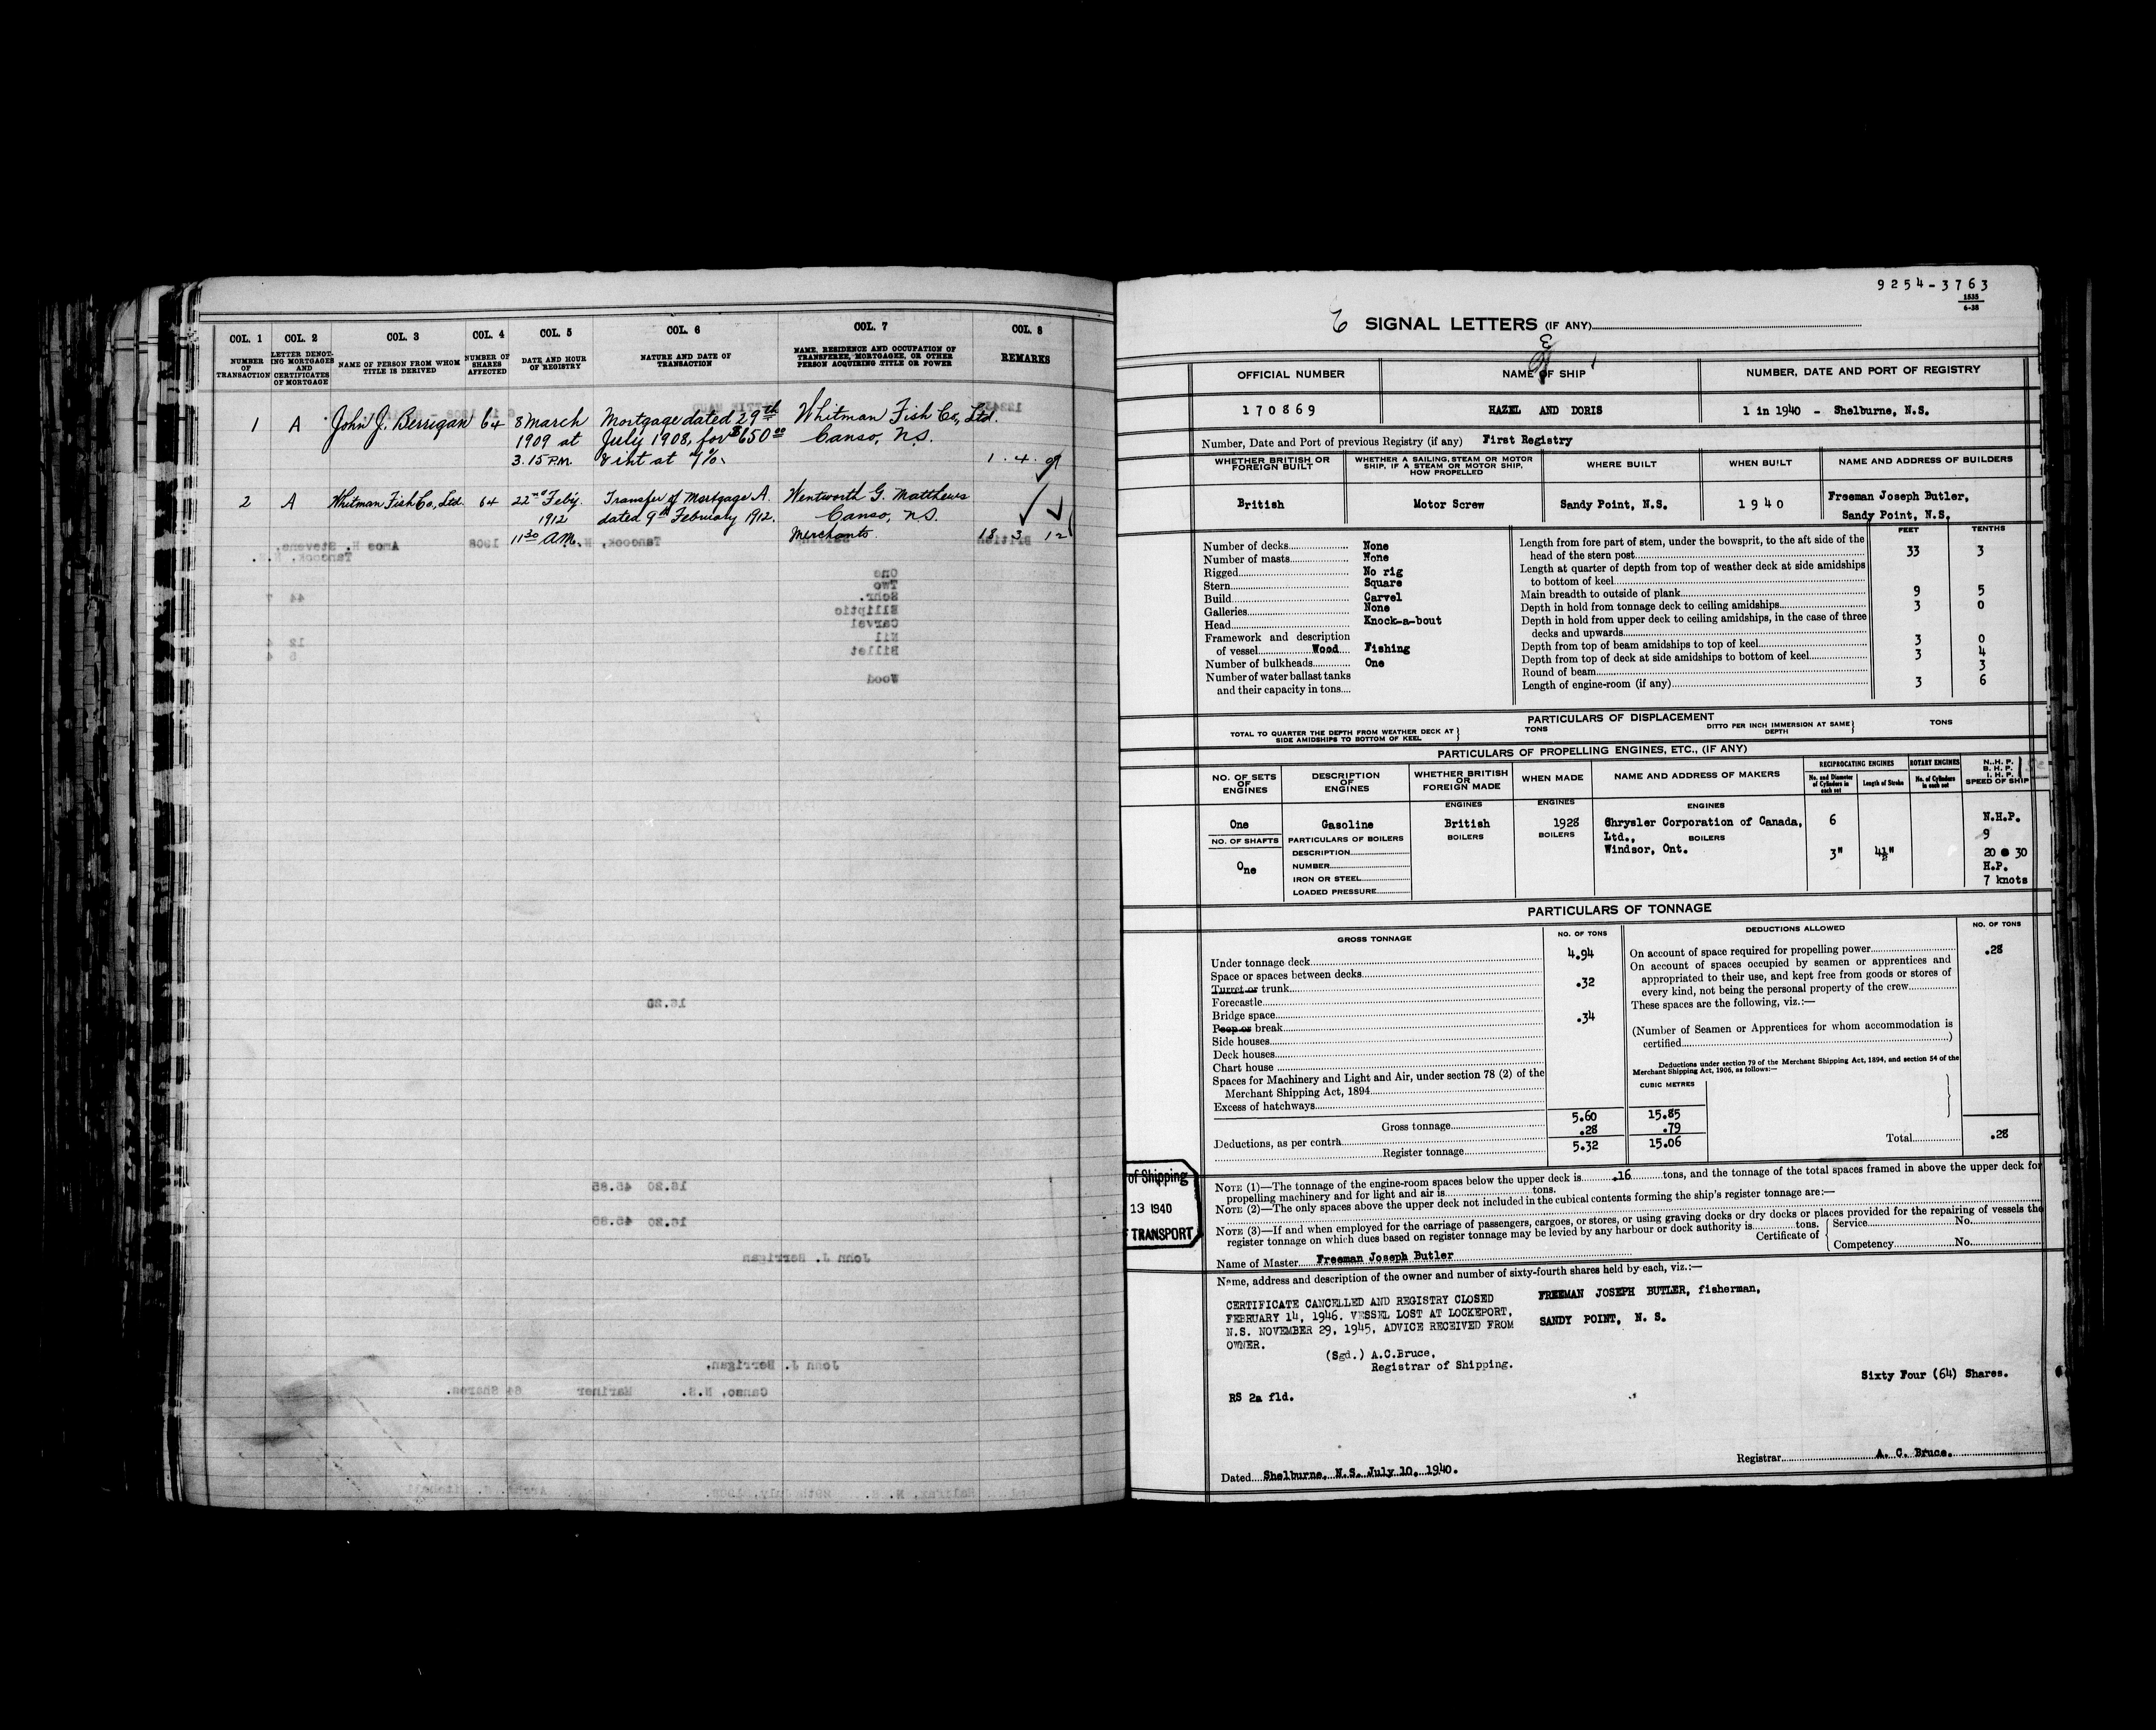 COL. 1 COL. 2 COL. 3 COL. 4 COL. 5 COL. 6 COL. 7 COL. 8
NUMBER OF TRANSACTION
LETTER DENOTING MORTGAGES AND CERTIFICATES OF MORTGAGE
NAME OF PERSON FROM WHOM TITLE IS DERIVED
NUMBER OF SHARES AFFECTED
DATE AND HOUR OF REGISTRY
NATURE AND DATE OF TRANSACTION
NAME, RESIDENCE AND OCCUPATION OF TRANSFEREE, MORTGAGEE, OR OTHER PERSON ACQUIRING TITLE OR POWER
REMARKS
1 A John J. Berrigan 64 8 March Mortgage dated 29th Whitman Fish Co, Ltd.
1909 at July 1908, for $650.00 Canso, N.S.
3.15 P.M. & int at 7%. 1. 4. 09
2 A Whitman Fish Co, Ltd. 64 22nd Feby. Transfer of Mortgage A. Wentworth G. Matthews
1912 dated 9th February 1912. Canso, N.S.
11 30 A.M. Merchants. 18 3 12
9254-3763
1535
6-38
SIGNAL LETTERS (IF ANY)
OFFICIAL NUMBER NAME OF SHIP NUMBER, DATE AND PORT OF REGISTRY
170869 HAZEL AND DORIS 1 in 1940 - Shelburne, N.S.
Number, Date and Port of previous Registry (if any) First Registry
WHETHER BRITISH OR FOREIGN BUILT
WHETHER A SAILING, STEAM OR MOTOR SHIP, IF A STEAM OR MOTOR SHIP, HOW PROPELLED
WHERE BUILT
WHEN BUILT
NAME AND ADDRESS OF BUILDERS
British Motor Screw Sandy Point, N.S. 1940 Freeman Joseph Butler,
Sandy Point, N.S.
FEET TENTHS
Number of decks None
Number of masts None
Rigged No rig
Stern Square
Build Carvel
Galleries None
Head Knock-a-bout
Framework and description
of vessel Wood Fishing
Number of bulkheads One
Number of water ballast tanks
and their capacity in tons
Length from fore part of stem, under the bowsprit, to the aft side of the
head of the stern post 33 3
Length at quarter of depth from top of weather deck at side amidships
to bottom of keel
Main breadth to outside of plank 9 5
Depth in hold from tonnage deck to ceiling amidships 3 0
Depth in hold from upper deck to ceiling amidships, in the case of three
decks and upwards
Depth from top of beam amidships to top of keel 3 0
Depth from top of deck at side amidships to bottom of keel 3 4
Round of beam 3
Length of engine-room (if any) 3 6
PARTICULARS OF DISPLACEMENT
TOTAL TO QUARTER THE DEPTH FROM WEATHER DECK AT SIDE AMIDSHIPS TO BOTTOM OF KEEL } TONS DITTO PER INCH IMMERSION AT SAME DEPTH } TONS
PARTICULARS OF PROPELLING ENGINES, ETC., (IF ANY)
NO. OF SETS OF ENGINES
DESCRIPTION OF ENGINES
WHETHER BRITISH OR FOREIGN MADE
WHEN MADE
NAME AND ADDRESS OF MAKERS
RECIPROCATING ENGINES
No. and Diameter of Cylinders in each set
Length of Stroke
ROTARY ENGINES
No. of Cylinders in each set
N.H.P.
B.H.P.
I.H.P.
SPEED OF SHIP
ENGINES ENGINES ENGINES
One Gasoline British 1928 Chrysler Corporation of Canada, 6 N.H.P.
NO. OF SHAFTS PARTICULARS OF BOILERS BOILERS BOILERS Ltd., BOILERS 9
DESCRIPTION Windsor, Ont. 3" 4½" 20 30
One NUMBER H.P.
IRON OR STEEL 7 knots
LOADED PRESSURE
PARTICULARS OF TONNAGE
GROSS TONNAGE NO. OF TONS DEDUCTIONS ALLOWED NO. OF TONS
Under tonnage deck 4.94
Space or spaces between decks
Turret or trunk .32
Forecastle
Bridge space
Poop or break .34
Side houses
Deck houses
Chart house
Spaces for Machinery and Light and Air, under section 78 (2) of the
Merchant Shipping Act, 1894
Excess of hatchways
Gross tonnage 5.60 15.85
Deductions, as per contra .28 .79
Register tonnage 5.32 15.06
On account of space required for propelling power .28
On account of spaces occupied by seamen or apprentices and
appropriated to their use, and kept free from goods or stores of
every kind, not being the personal property of the crew
These spaces are the following, viz.:—
(Number of Seamen or Apprentices for whom accommodation is
certified )
Deductions under section 79 of the Merchant Shipping Act, 1894, and section 54 of the
Merchant Shipping Act, 1906, as follows:—
CUBIC METRES
Total .28
of Shipping
13 1940
TRANSPORT
NOTE (1)—The tonnage of the engine-room spaces below the upper deck is .16 tons, and the tonnage of the total spaces framed in above the upper deck for
propelling machinery and for light and air is tons.
NOTE (2)—The only spaces above the upper deck not included in the cubical contents forming the ship's register tonnage are:—
NOTE (3)—If and when employed for the carriage of passengers, cargoes, or stores, or using graving docks or dry docks or places provided for the repairing of vessels the
register tonnage on which dues based on register tonnage may be levied by any harbour or dock authority is tons.
Certificate of { Service No.
Competency No.
Name of Master Freeman Joseph Butler
Name, address and description of the owner and number of sixty-fourth shares held by each, viz.:—
CERTIFICATE CANCELLED AND REGISTRY CLOSED
FEBRUARY 14, 1946. VESSEL LOST AT LOCKEPORT,
N.S. NOVEMBER 29, 1945, ADVICE RECEIVED FROM
OWNER.
(Sgd.) A.C.Bruce,
Registrar of Shipping.
RS 2a fld.
FREEMAN JOSEPH BUTLER, fisherman,
SANDY POINT, N. S.
Sixty Four (64) Shares.
Dated Shelburne, N.S. July 10, 1940.
Registrar A. C. Bruce.